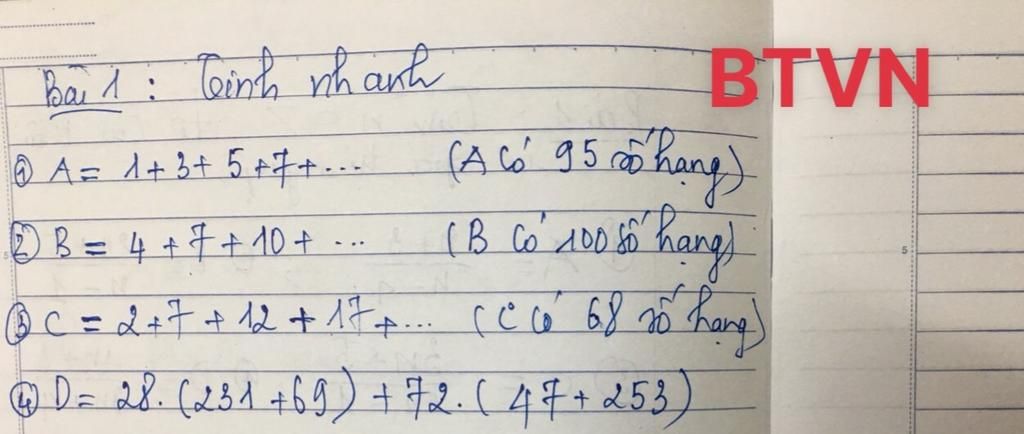 BTVN
Bài 1 : Tính nhanh
① A = 1 + 3 + 5 + 7 + ... (A có 95 số hạng)
② B = 4 + 7 + 10 + ... (B có 100 số hạng)
③ C = 2 + 7 + 12 + 17 + ... (C có 68 số hạng)
④ D = 28 . (231 + 69) + 72 . (47 + 253)